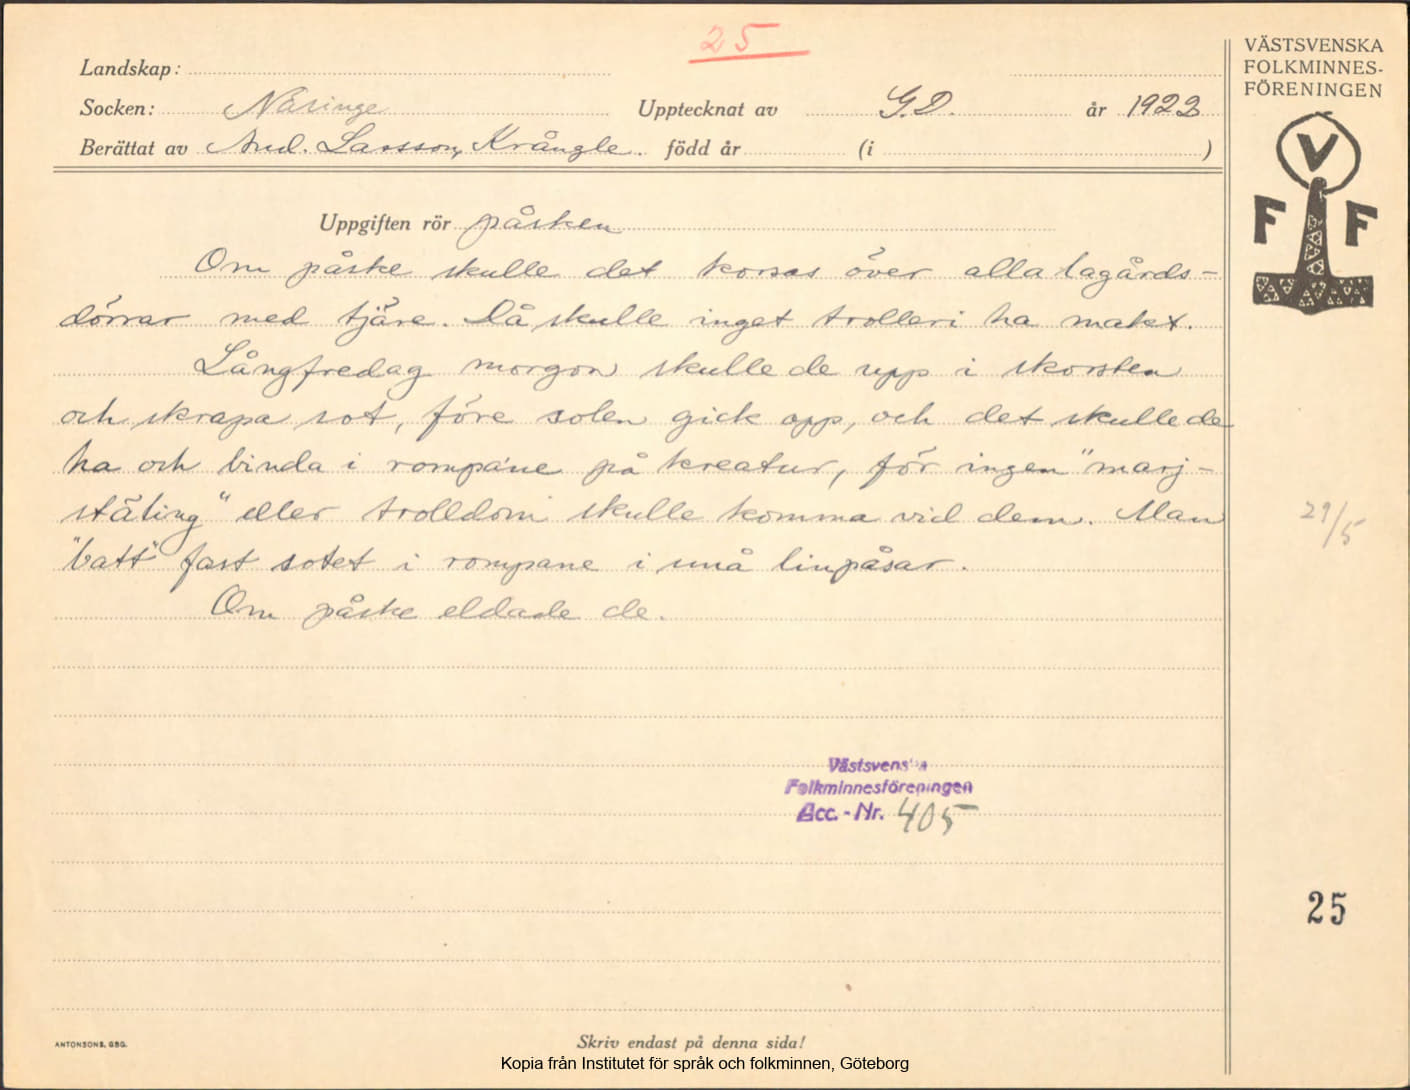 25
Landskap:
VÄSTSVENSKA
FOLKMINNES-
FÖRENINGEN
Socken: Näsinge Upptecknat av G.D. år 1923
Berättat av And. Larsson, Krångle. född år (i )
V
F F
Uppgiften rör påsken
Om påske skulle det korsas över alla lagårds-
dörrar med tjäre. Då skulle inget trolleri ha makt.
Långfredag morgon skulle de upp i skorsten
och skrapa sot, före solen gick opp, och det skulle de
ha och binda i rompane på kreatur, för ingen "marj-
ståling" eller trolldom skulle komma vid dem. Man
"batt" fast sotet i rompane i små linpåsar.
Om påske eldade de.
29/5
Västsvenska
Folkminnesföreningen
Acc.-Nr. 405
25
ANTONSONS, GBG.
Skriv endast på denna sida!
Kopia från Institutet för språk och folkminnen, Göteborg